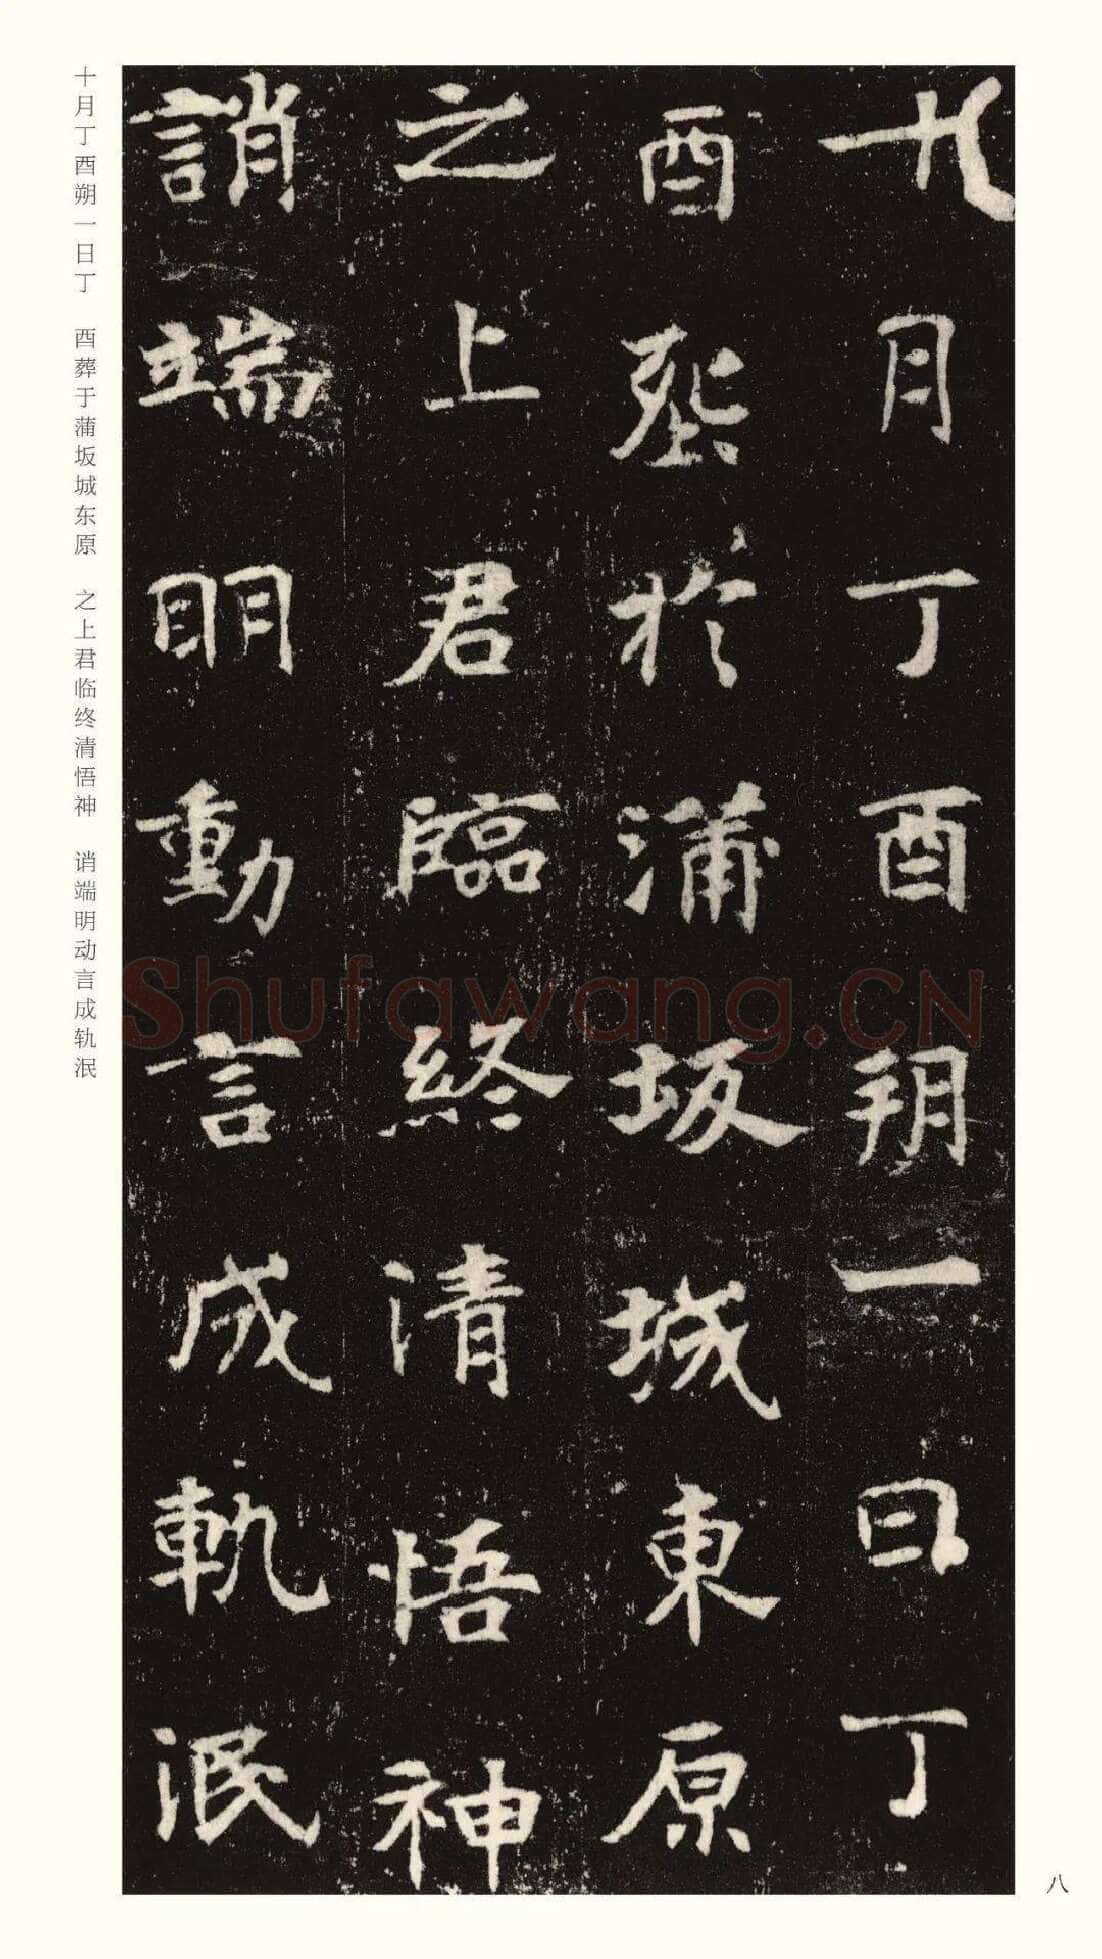 十月丁酉朔一日丁
酉塟於蒲坂城東原
之上君臨終清悟神
誚端明動言成軌泯
十月丁酉朔一日丁　酉葬于蒲坂城东原　之上君临终清悟神　诮端明动言成轨泯
Shufawang.CN
八